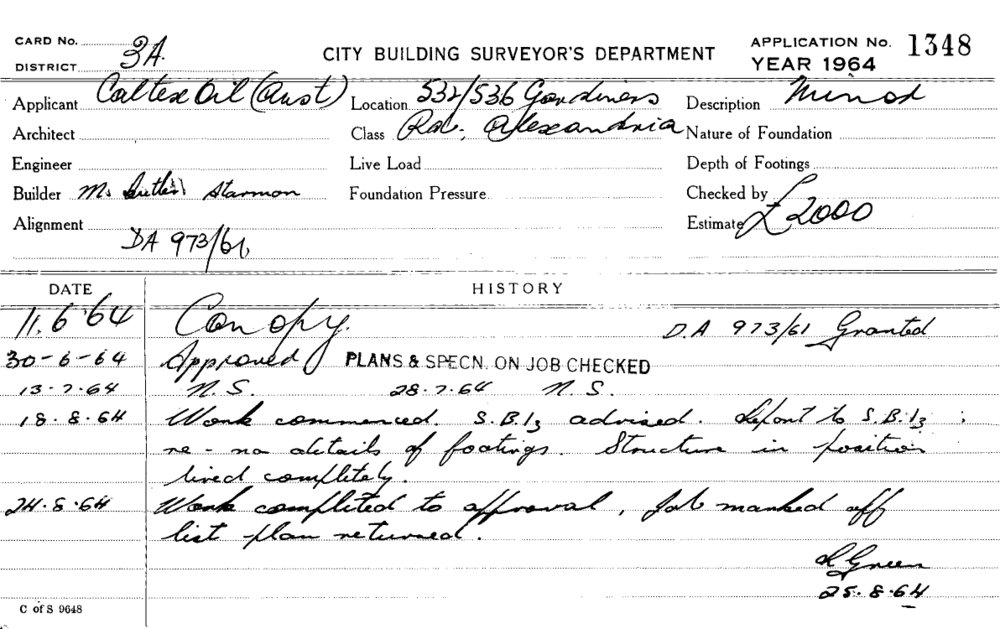 CARD No. 3A
DISTRICT
CITY BUILDING SURVEYOR'S DEPARTMENT
APPLICATION No. 1348
YEAR 1964
Applicant Caltex Oil (Aust)
Location 532/536 Gardiners
Description Minor
Architect
Class Rd. Alexandria
Nature of Foundation
Engineer
Live Load
Depth of Footings
Builder Starmon
Foundation Pressure
Checked by
Alignment
Estimate £2000
DA 973/61,
DATE HISTORY
11.6.64 Canopy. D.A 973/61 Granted
30-6-64 Approved PLANS & SPECN. ON JOB CHECKED
13-7-64 N.S. 28.7.64 N.S.
18.8.64 Work commenced. S.B.I3 advised. Report to S.B.I3 :
re - no details of footings. Structure in position
completely.
24.8.64 Work completed to approval, Job marked off
list plan returned.
Green
25.8.64
C of S 9648